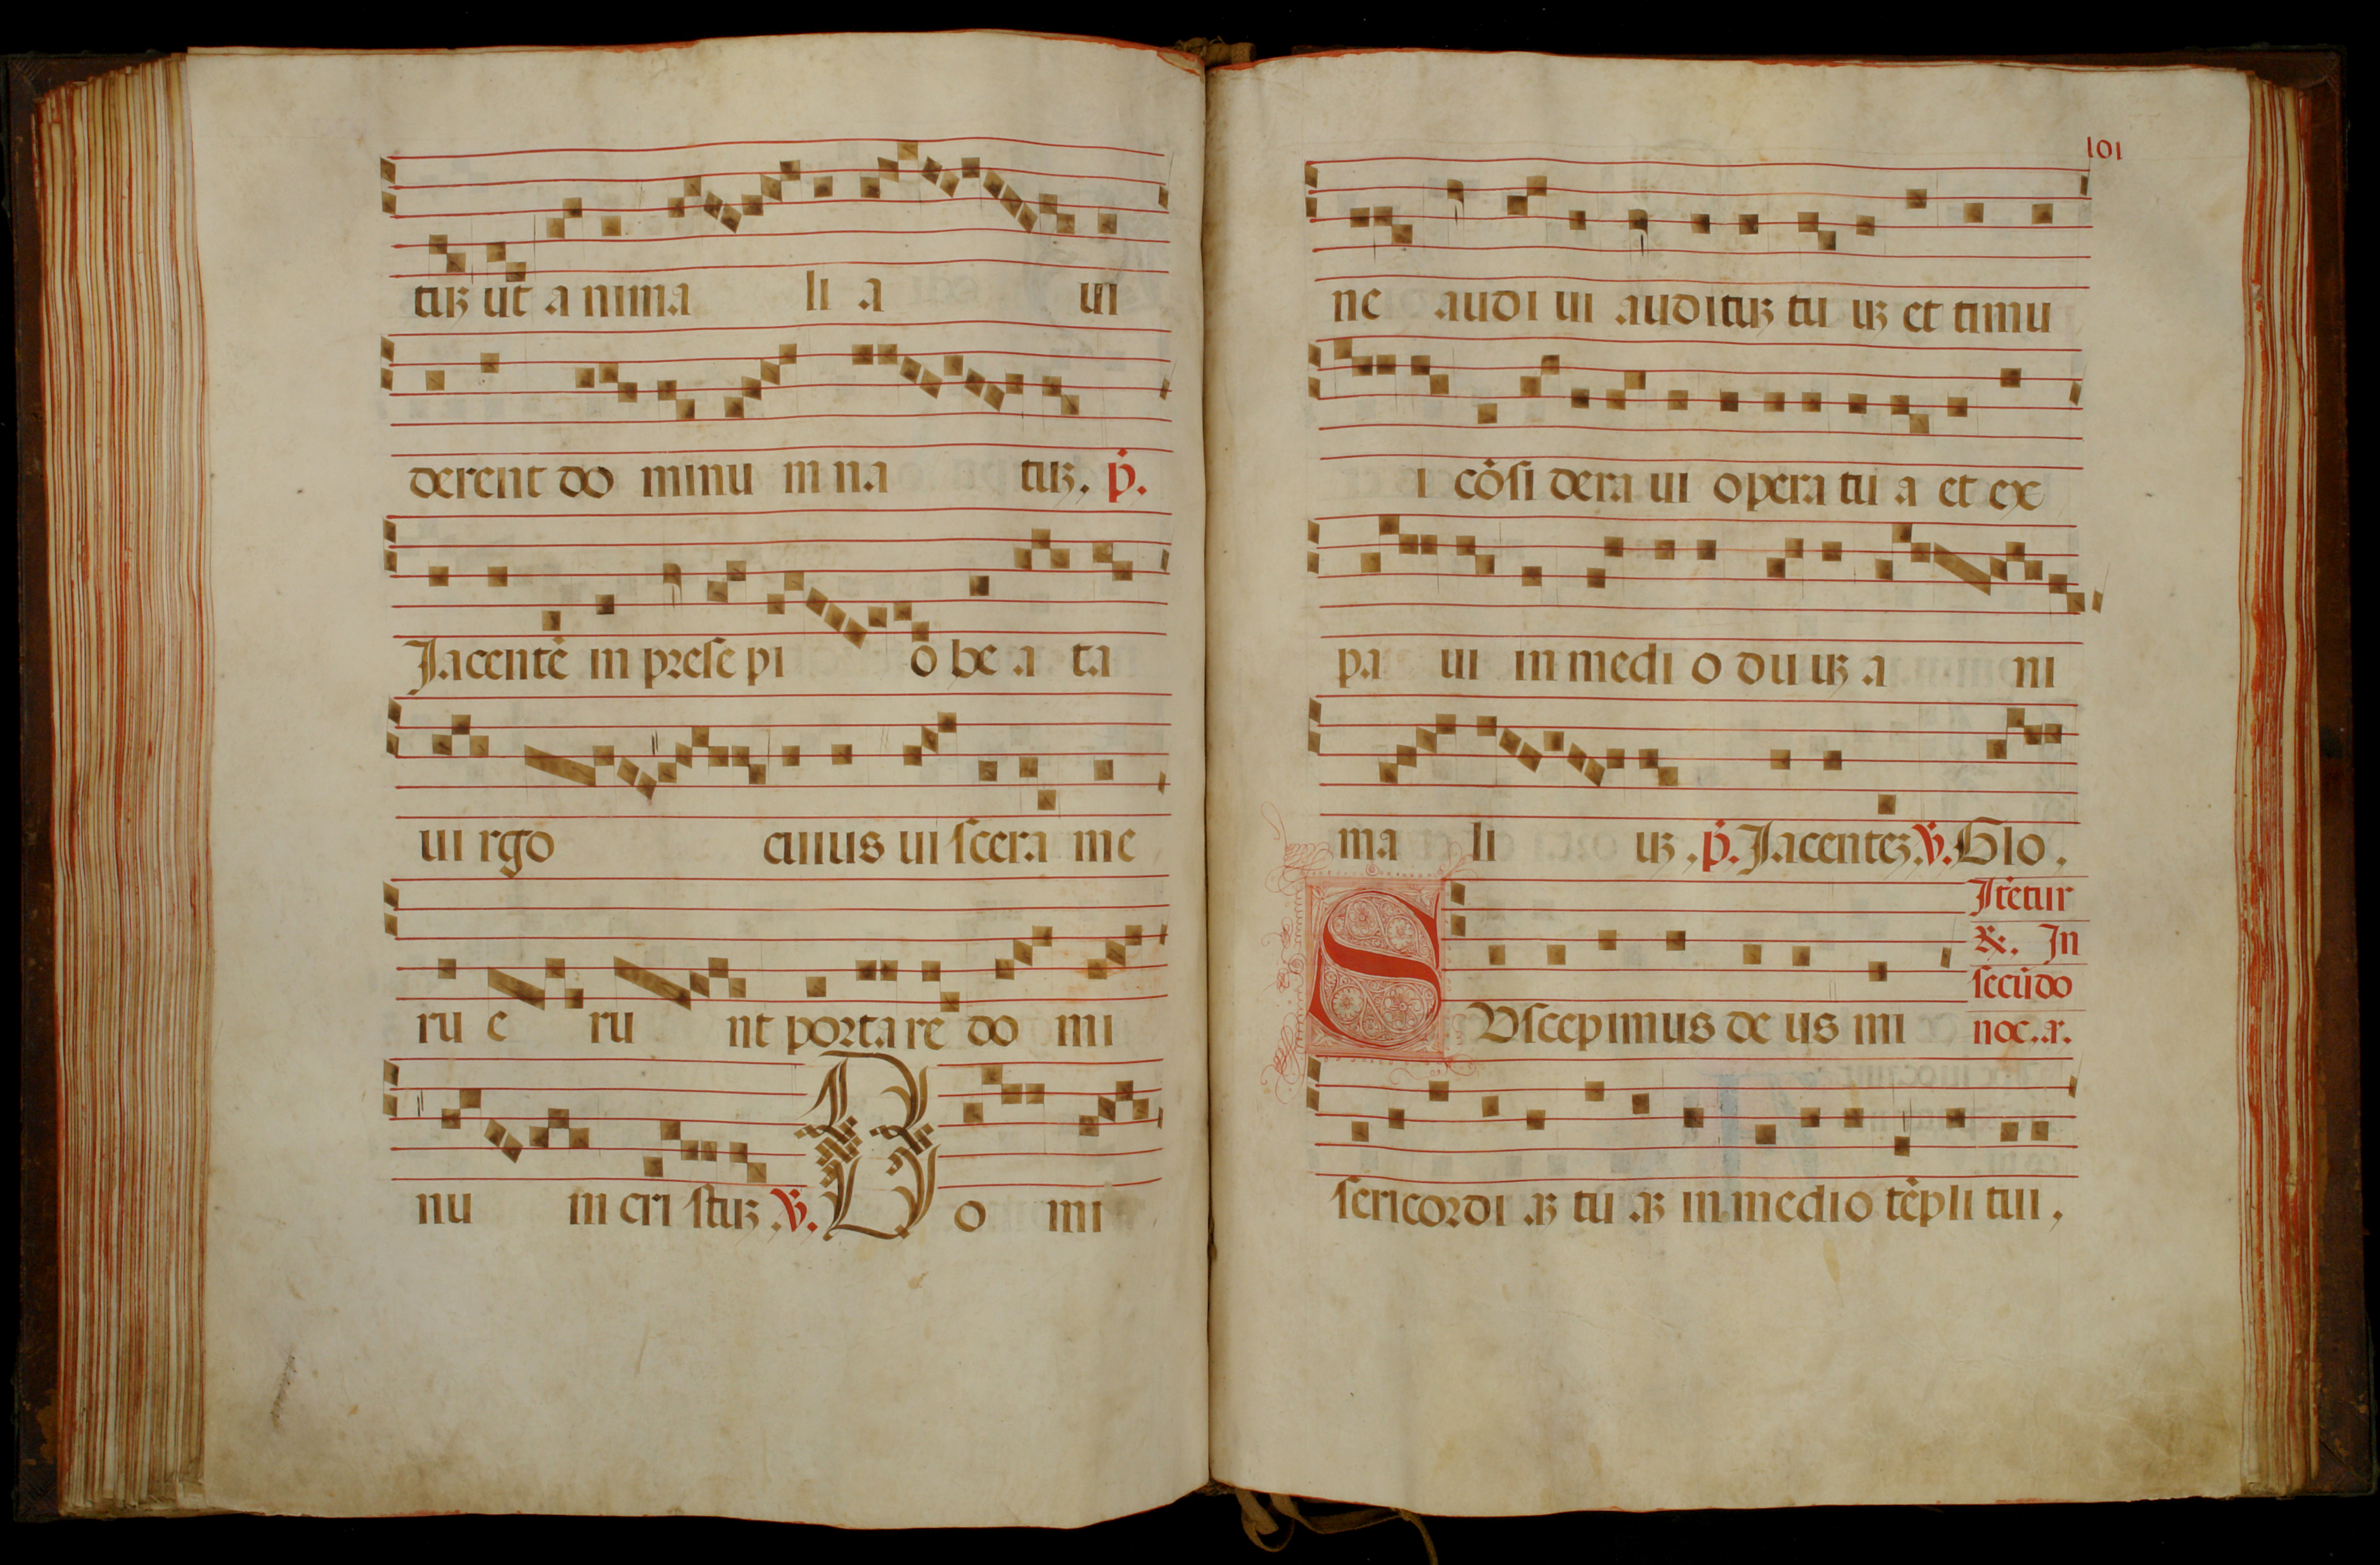 tuꝫ ut a nima li a ui
derent do minu in na tuꝫ. ṗ.
Jacentē in prese pi o be a ta
ui rgo cuius ui scera me
ru e ru nt portare do mi
nu in cri stuꝫ .v̇. D o mi
101
ne audi ui audituꝫ tu uꝫ et timu
i cōsi dera ui opera tu a et ex
pa ui in medi o du uꝫ a ni
ma li uꝫ .ṗ. Jacenteꝫ .v̇. Glo.
Itetur
&. In
secūdo
noc. .r.
SUscepimus de us mi
sericordi .aꝫ tu .aꝫ in medio tēpli tui,